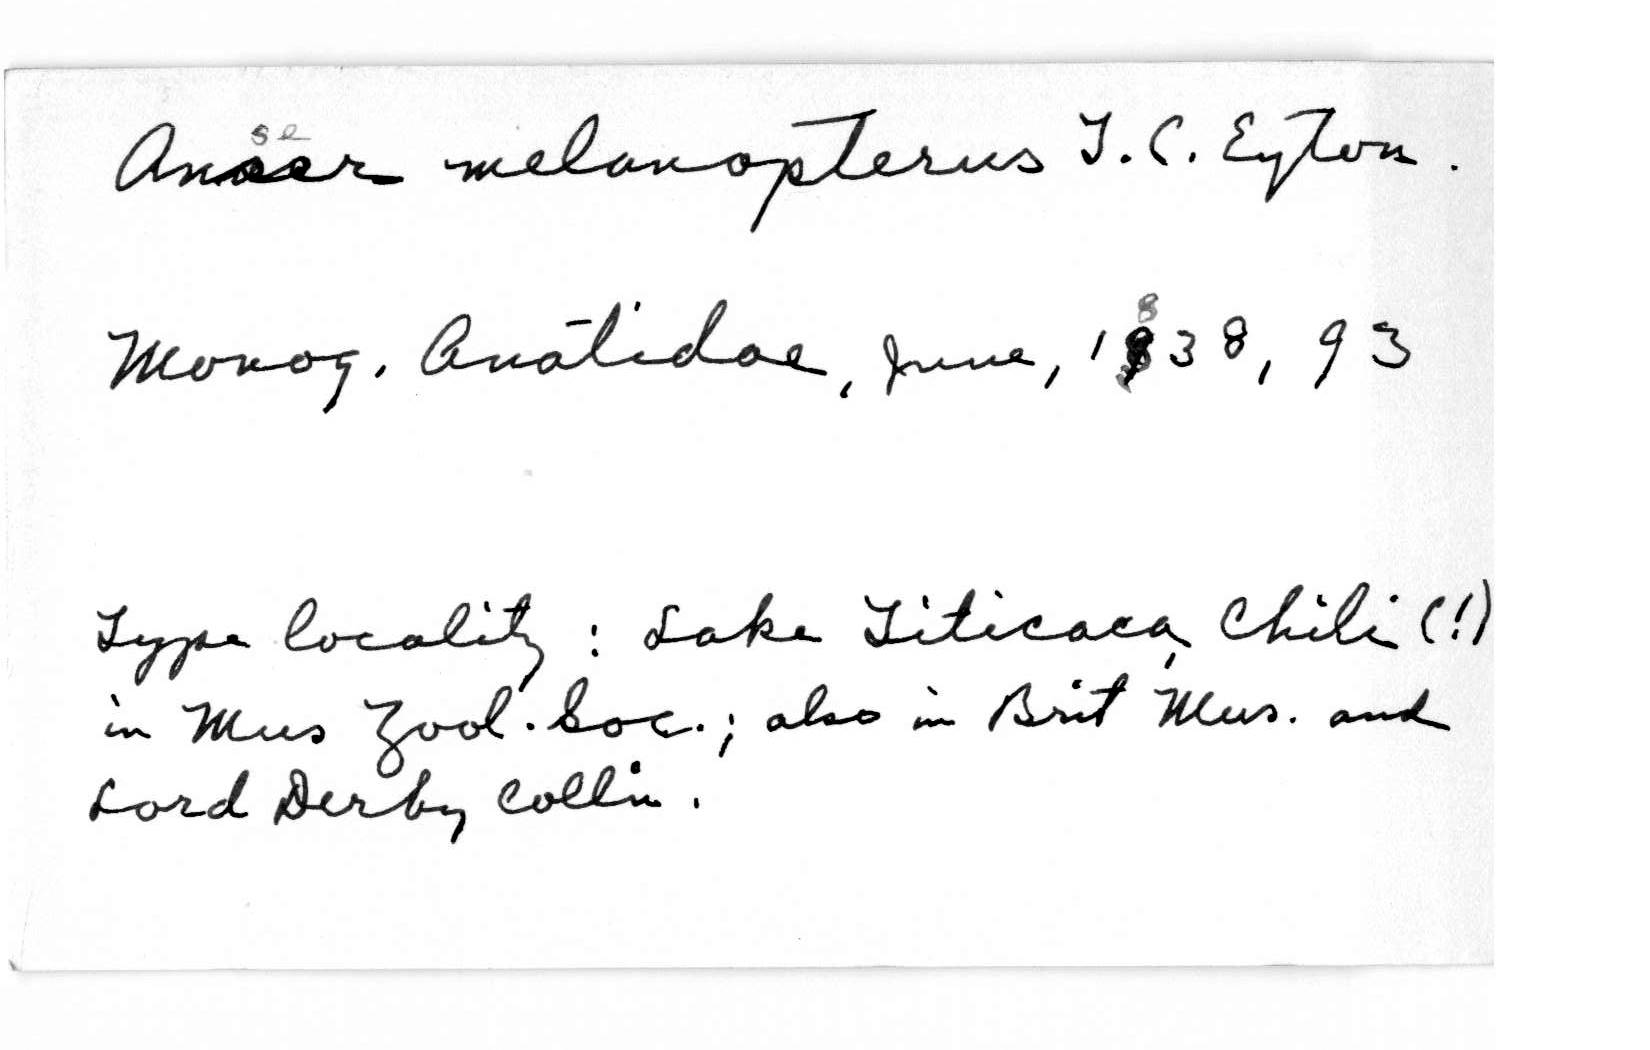 Anser melanopterus T. C. Eyton.
Monog. Anatidae, June, 1838, 93
Type locality: Lake Titicaca, Chili (!)
in Mus Zool. Soc.; also in Brit Mus. and
Lord Derby Colln.